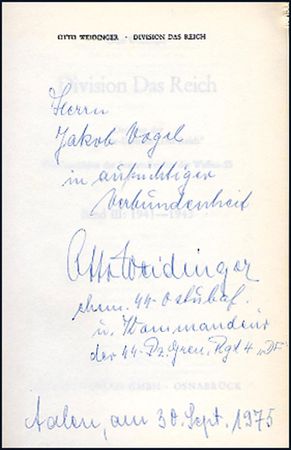 OTTO WEIDINGER · DIVISION DAS REICH
Division Das Reich
Herrn
Jakob Vogel
in aufrichtiger
Verbundenheit
Band III: 1941—1943
Otto Weidinger
ehem. SS-Ostubaf.
u. Kommandeur
der SS-Pz.Gren.Rgt 4 „DF“
GMBH · OSNABRÜCK
Aalen, am 30. Sept. 1975